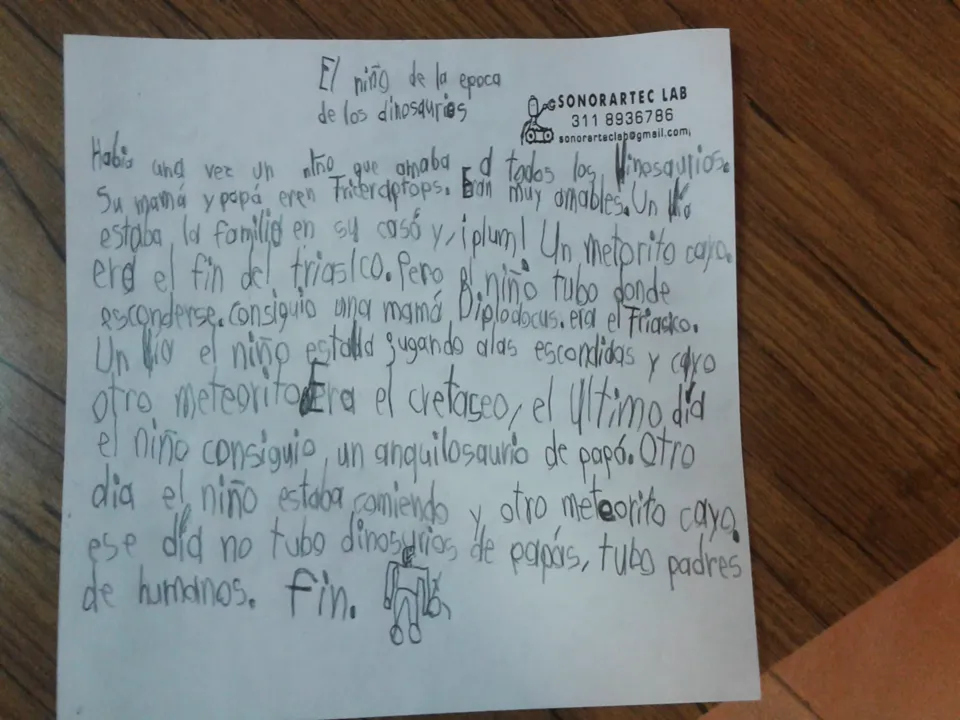 El niño de la epoca
de los dinosaurios
SONORARTEC LAB
311 8936786
sonorarteclab@gmail.com,
Habia una vez un niño que amaba a todos los dinosaurios.
Su mamá y papá eren Triteraptops. Eran muy amables. Un día
estaba la familia en su casa y, ¡plum! Un metorito cayo.
era el fin del triasico. Pero el niño tubo donde
esconderse. consiguio una mamá Diplodocus. era el Triasico.
Un dia el niño estaba gugando alas escondidas y cayo
otro meteorito Era el cretaseo, el Ultimo día
el niño consiguio, un anquilosaurio de papá. Otro
dia el niño estaba comiendo y otro meteorito cayo.
ese día no tubo dinosurios de papás, tubo padres
de humanos. Fin.